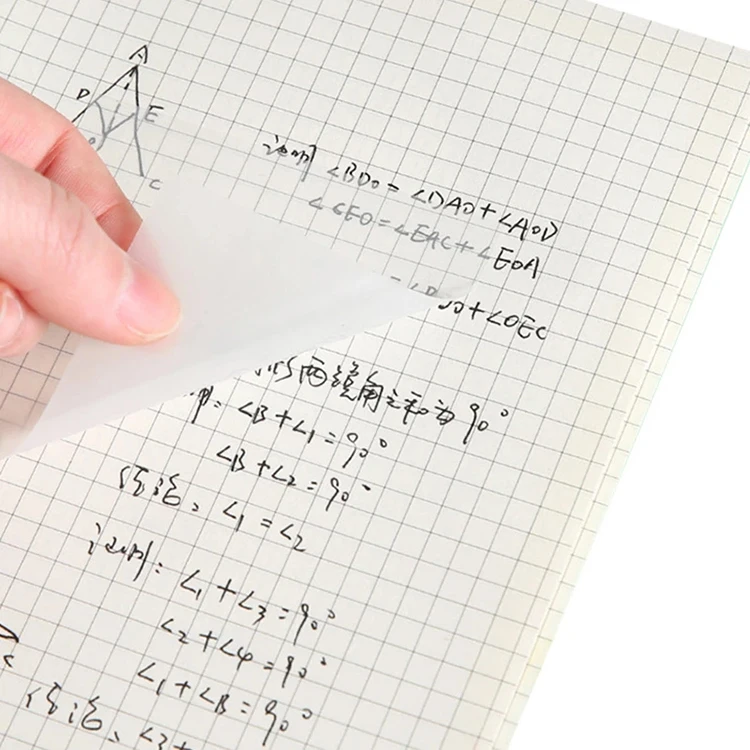 A
D
E
O
C
证明 ∠BDO = ∠DAO + ∠AOD
∠CEO = ∠EAC + ∠EOA
+ ∠OEC
两锐角之和为 90°
∠B + ∠1 = 90°
∠B + ∠2 = 90°
结论、∠1 = ∠2
证明: ∠1 + ∠3 = 90°
∠2 + ∠4 = 90°
∠1 + ∠B = 90°
结论、∠3 +
C